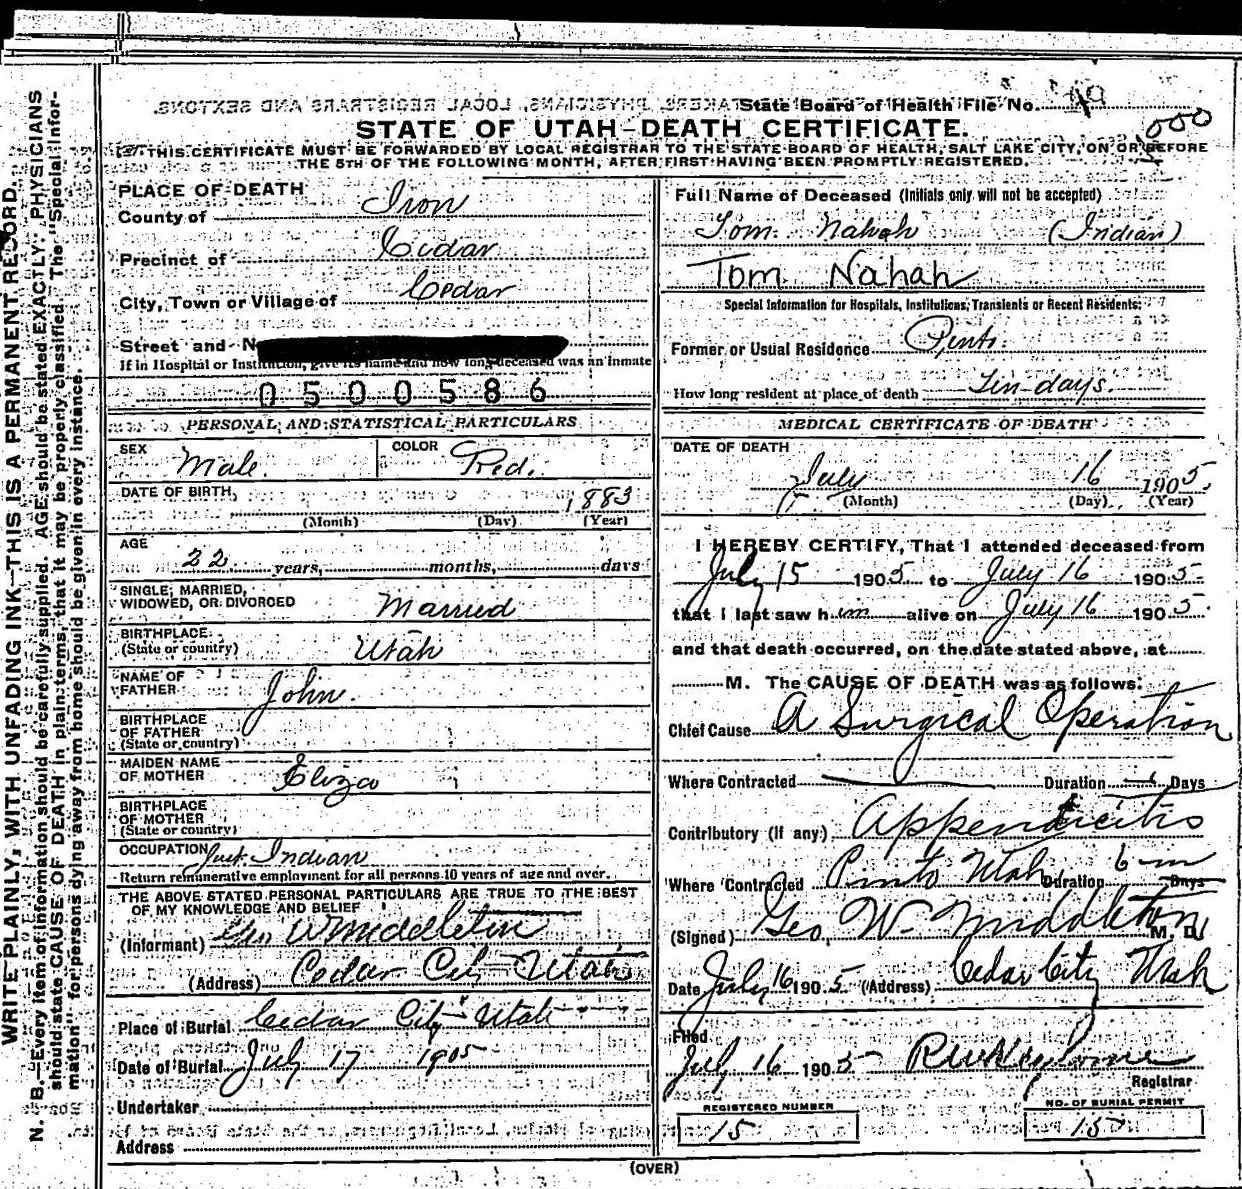 State Board of Health File No. 49
STATE OF UTAH—DEATH CERTIFICATE.
THIS CERTIFICATE MUST BE FORWARDED BY LOCAL REGISTRAR TO THE STATE BOARD OF HEALTH, SALT LAKE CITY, ON OR BEFORE
THE 5TH OF THE FOLLOWING MONTH, AFTER FIRST HAVING BEEN PROMPTLY REGISTERED.
WRITE PLAINLY, WITH UNFADING INK—THIS IS A PERMANENT RECORD.
N. B.—Every item of information should be carefully supplied. AGE should be stated EXACTLY. PHYSICIANS
should state CAUSE OF DEATH in plain terms, that it may be properly classified. The "Special Infor-
mation" for persons dying away from home should be given in every instance.
PLACE OF DEATH
County of Iron
Precinct of Cedar
City, Town or Village of Cedar
Street and N
If in Hospital or Institution, give its name and how long deceased was an inmate
0500586
PERSONAL AND STATISTICAL PARTICULARS
SEX Male. COLOR Red.
DATE OF BIRTH, 1883
(Month) (Day) (Year)
AGE
22 years, months, days
SINGLE, MARRIED,
WIDOWED, OR DIVORCED Married
BIRTHPLACE
(State or country) Utah
NAME OF
FATHER John.
BIRTHPLACE
OF FATHER
(State or country)
MAIDEN NAME
OF MOTHER Eliza
BIRTHPLACE
OF MOTHER
(State or country)
OCCUPATION Just Indian
Return remunerative employment for all persons 10 years of age and over.
THE ABOVE STATED PERSONAL PARTICULARS ARE TRUE TO THE BEST
OF MY KNOWLEDGE AND BELIEF
(Informant) Geo W Middleton
(Address) Cedar City Utah
Place of Burial Cedar City Utah
Date of Burial July 17 1905
Undertaker
Address
Full Name of Deceased (Initials only will not be accepted)
Tom Nahah (Indian)
Tom Nahah
Special Information for Hospitals, Institutions, Transients or Recent Residents:
Former or Usual Residence Pinto.
How long resident at place of death Ten days.
MEDICAL CERTIFICATE OF DEATH
DATE OF DEATH
July 16 1905.
(Month) (Day) (Year)
I HEREBY CERTIFY, That I attended deceased from
July 15 1905 to July 16 1905
that I last saw him alive on July 16 1905.
and that death occurred, on the date stated above, at
M. The CAUSE OF DEATH was as follows:
Chief Cause A Surgical Operation
Where Contracted Duration Days
Contributory (if any) Appendicitis
Where Contracted Pinto Utah Duration 6 m Days
(Signed) Geo. W. Middleton M. D.
Date July 16 1905 (Address) Cedar City Utah
Filed
July 16 1905
Registrar
REGISTERED NUMBER
15
NO. OF BURIAL PERMIT
15
(OVER)